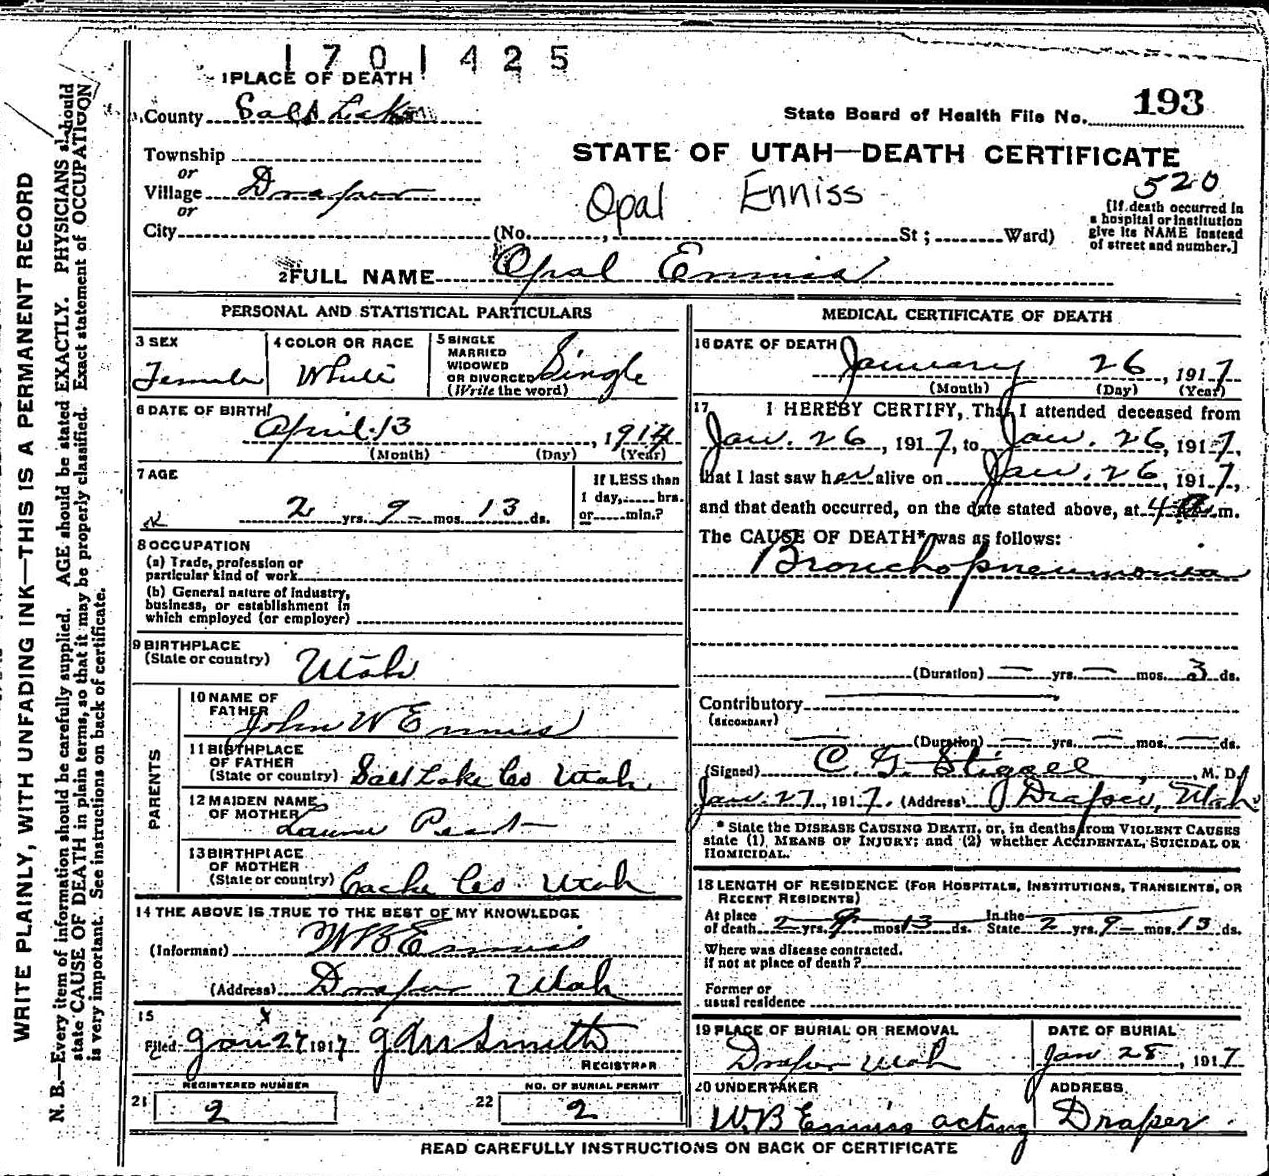 1701425
1 PLACE OF DEATH
County Salt Lake
State Board of Health File No. 193
STATE OF UTAH—DEATH CERTIFICATE
Township
or
Village Draper
or
City (No. , St; Ward)
Opal Enniss
520
[If death occurred in
a hospital or institution
give its NAME instead
of street and number.]
2 FULL NAME Opal Enniss
PERSONAL AND STATISTICAL PARTICULARS
3 SEX
Female
4 COLOR OR RACE
White
5 SINGLE
MARRIED
WIDOWED
OR DIVORCED
(Write the word)
Single
6 DATE OF BIRTH
April 13, 1914
(Month) (Day) (Year)
7 AGE
2 yrs. 9 mos. 13 ds.
If LESS than
1 day, hrs.
or min.?
8 OCCUPATION
(a) Trade, profession or
particular kind of work
(b) General nature of industry,
business, or establishment in
which employed (or employer)
9 BIRTHPLACE
(State or country) Utah
PARENTS
10 NAME OF
FATHER John W Enniss
11 BIRTHPLACE
OF FATHER
(State or country) Salt Lake Co Utah
12 MAIDEN NAME
OF MOTHER
13 BIRTHPLACE
OF MOTHER
(State or country) Cache Co Utah
14 THE ABOVE IS TRUE TO THE BEST OF MY KNOWLEDGE
(Informant) W B Enniss
(Address) Draper Utah
15
Filed Jan 27 1917 Smith
REGISTRAR
REGISTERED NUMBER
21 2
NO. OF BURIAL PERMIT
22 2
MEDICAL CERTIFICATE OF DEATH
16 DATE OF DEATH
January 26, 1917
(Month) (Day) (Year)
17 I HEREBY CERTIFY, That I attended deceased from
Jan. 26, 1917, to Jan. 26, 1917,
that I last saw her alive on Jan. 26, 1917,
and that death occurred, on the date stated above, at 4 m.
The CAUSE OF DEATH* was as follows:
Bronchopneumonia
(Duration) — yrs. — mos. 3 ds.
Contributory
(SECONDARY)
(Duration) — yrs. — mos. — ds.
(Signed) C. G. , M. D.
Jan. 27, 1917. (Address) Draper, Utah
* State the DISEASE CAUSING DEATH, or, in deaths from VIOLENT CAUSES
state (1) MEANS OF INJURY; and (2) whether ACCIDENTAL, SUICIDAL OR
HOMICIDAL.
18 LENGTH OF RESIDENCE (FOR HOSPITALS, INSTITUTIONS, TRANSIENTS, OR
RECENT RESIDENTS)
At place
of death 2 yrs. 9 mos. 13 ds.
In the
State 2 yrs. 9 mos. 13 ds.
Where was disease contracted.
if not at place of death?
Former or
usual residence
19 PLACE OF BURIAL OR REMOVAL
Draper Utah
DATE OF BURIAL
Jan 28, 1917
20 UNDERTAKER
W.B Enniss acting
ADDRESS
Draper
READ CAREFULLY INSTRUCTIONS ON BACK OF CERTIFICATE
WRITE PLAINLY, WITH UNFADING INK—THIS IS A PERMANENT RECORD
N. B.—Every item of information should be carefully supplied. AGE should be stated EXACTLY. PHYSICIANS should
state CAUSE OF DEATH in plain terms, so that it may be properly classified. Exact statement of OCCUPATION
is very important. See instructions on back of certificate.